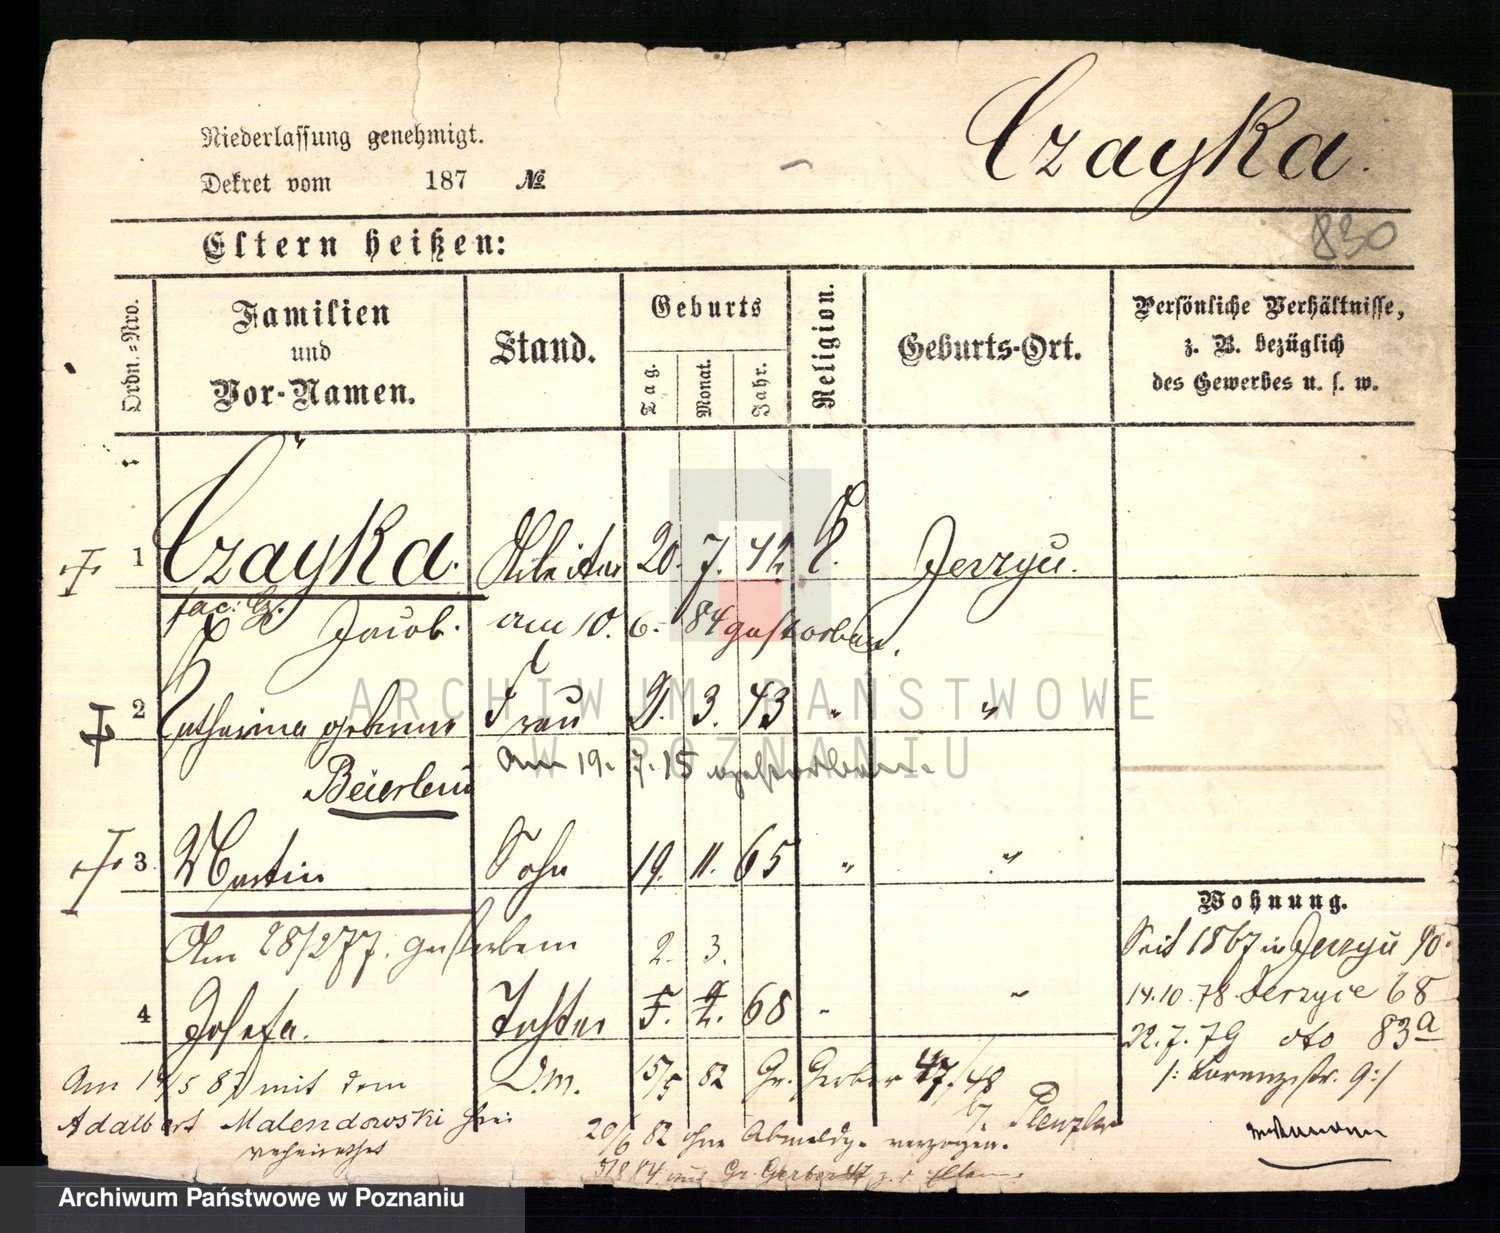 Czayka.
Niederlassung genehmigt.
Dekret vom 187 №
830
Eltern heißen:
Ordn.-Nro.
Familien und Vor-Namen.
Stand.
Geburts
Tag. Monat. Jahr.
Religion.
Geburts-Ort.
Persönliche Verhältnisse,
z. B. bezüglich
des Gewerbes u. s. w.
1 Czayka. Arbeiter 20. 7. 42 Jerzyu.
Jacob. am 10. 6. 84 gestorben.
2 Catharina geborene Frau 2. 3. 43 " "
Beierlein am 19. 7. 15 gestorben.
3 Martin Sohn 19. 11. 65 " "
Am 28/2 77. gestorben 2. 3.
4 Josefa. Tochter 68 " "
Am 14/5 87 mit dem D.m. 15/5 82 Gr. Gerber 47/48
Adalbert Malendowski
verheirathet
b/. Plenzler
20/6 82 ohne Abmeldg. verzogen.
Gr. Gerber
Wohnung.
Seit 1867 in Jerzyu 90.
14.10.78 Jerzyce 68
22.7.79 dto 83a
/: Lorenzstr. 9:/
ARCHIWUM PAŃSTWOWE
W POZNANIU
Archiwum Państwowe w Poznaniu